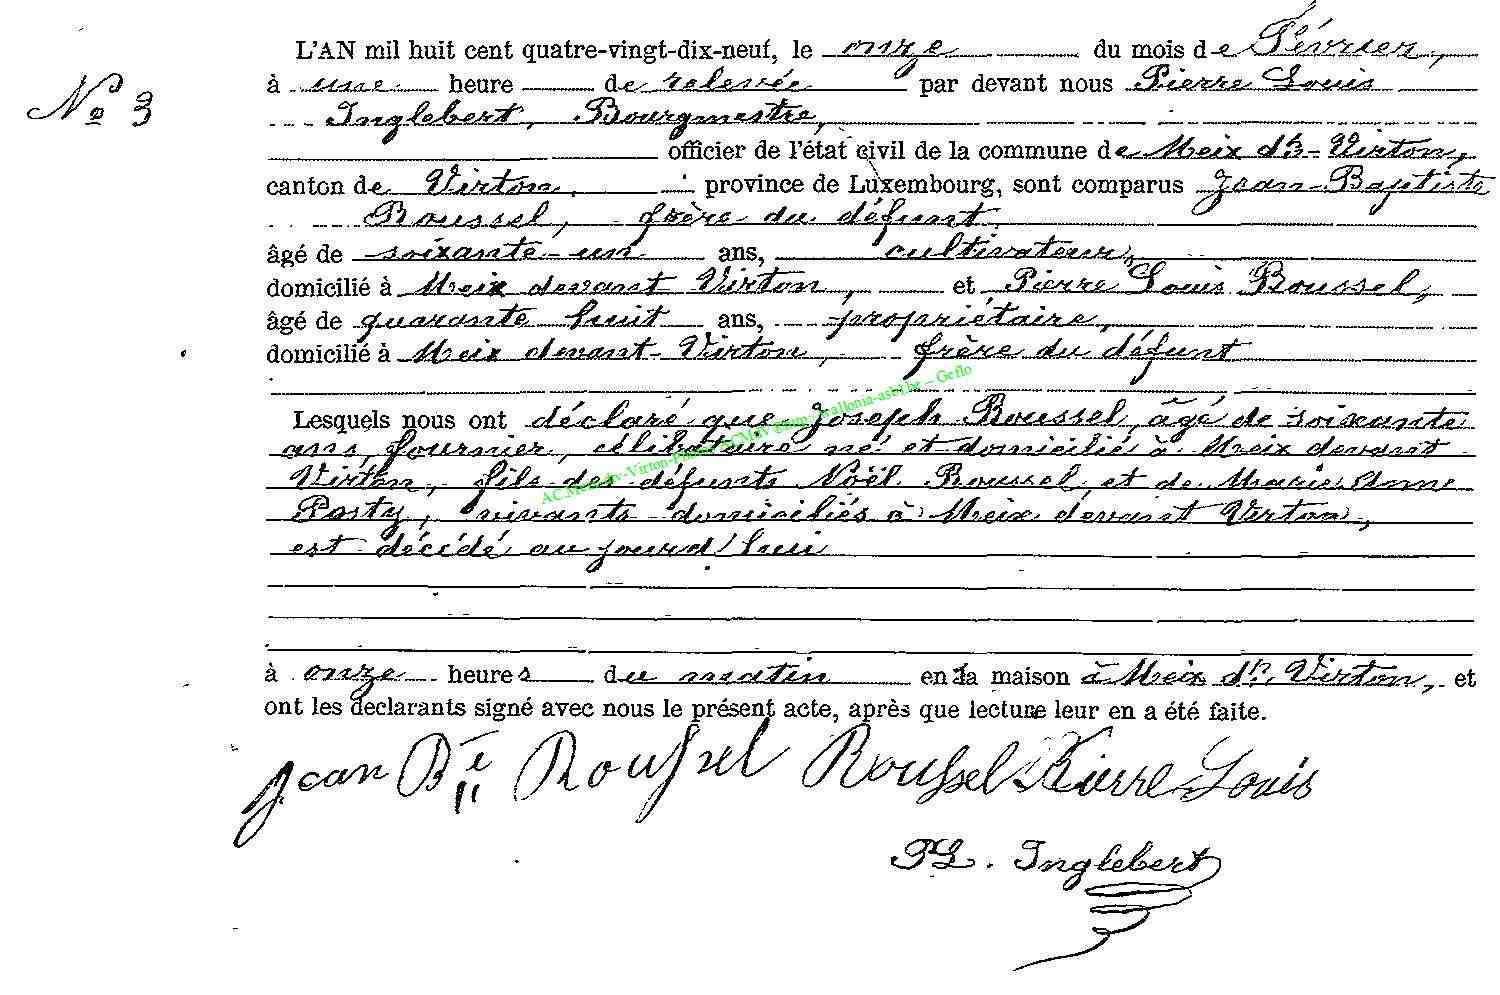 L'AN mil huit cent quatre-vingt-dix-neuf, le onze du mois de Février,
N° 3
à une heure de relevée par devant nous Pierre Louis
Inglebert, Bourgmestre,
officier de l'état civil de la commune de Meix dt-Virton,
canton de Virton, province de Luxembourg, sont comparus Jean-Baptiste
Roussel, frère du défunt
âgé de soixante-un ans, cultivateur,
domicilié à Meix devant Virton, et Pierre Louis Roussel,
âgé de quarante huit ans, propriétaire,
domicilié à Meix devant-Virton, frère du défunt
Lesquels nous ont déclaré que Joseph Roussel, âgé de soixante
ans, fournier, célibataire né et domicilié à Meix devant
Virton, fils des défunts Noël Roussel et de Marie Anne
vivants domiciliés à Meix devant Virton,
est décédé au jourd'hui
à onze heures du matin en la maison à Meix dt Virton, et
ont les declarants signé avec nous le présent acte, après que lecture leur en a été faite.
Jean Bte Roussel Roussel Pierre Louis
PL. Inglebert